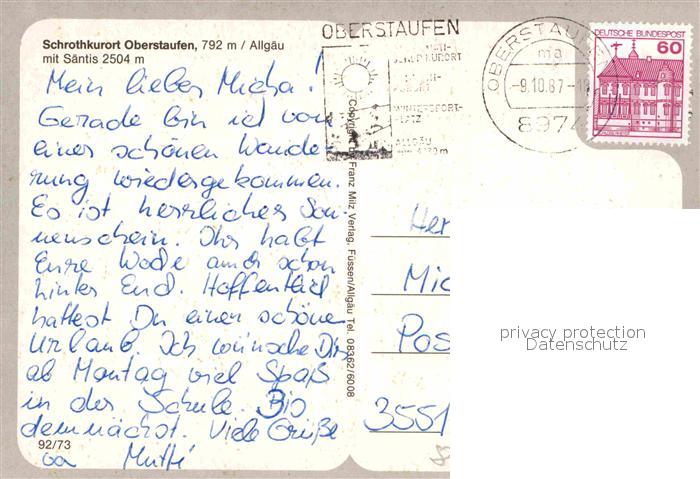 Schrothkurort Oberstaufen, 792 m / Allgäu
mit Säntis 2504 m
Mein lieber Micha!
Gerade bin ich von
einer schönen Wande-
rung wiedergekommen.
Es ist herrlicher Son-
nenschein. Ihr habt
Eure Woche auch schon
hinter Euch. Hoffentlich
hattest Du einen schönen
Urlaub. Ich wünsche Dir
ab Montag viel Spaß
in der Schule. Bis
demnächst. Viele Grüße
92/73
Mutti
Copyright by Franz Milz Verlag, Füssen/Allgäu Tel. 08362/6008
OBERSTAUFEN
WINTERSPORT-
PLATZ
ALLGÄU
OBERSTAUFEN
mg
-9.10.87-1
8974
DEUTSCHE BUNDESPOST
60
Her
Mic
Pos
3551
privacy protection
Datenschutz